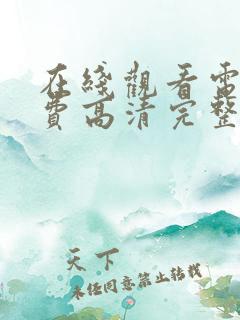 在綫觀看電
費高清完整
天下
未经同意禁止转载